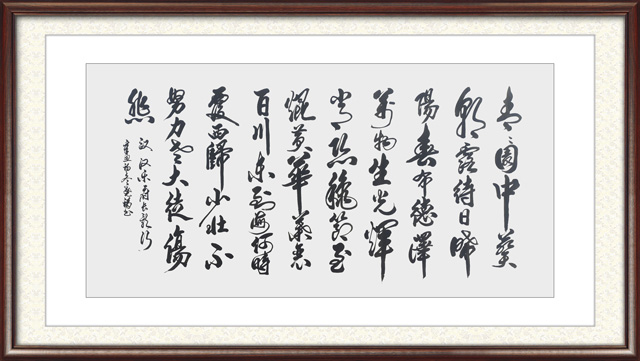 青〻園中葵
朝露待日晞
陽春布德澤
萬物生光輝
常恐穐節至
焜黃華葉衰
百川東到海何時
復西歸少壯不
努力老大徒傷
悲
汉乐府长歌行
辛丑
书